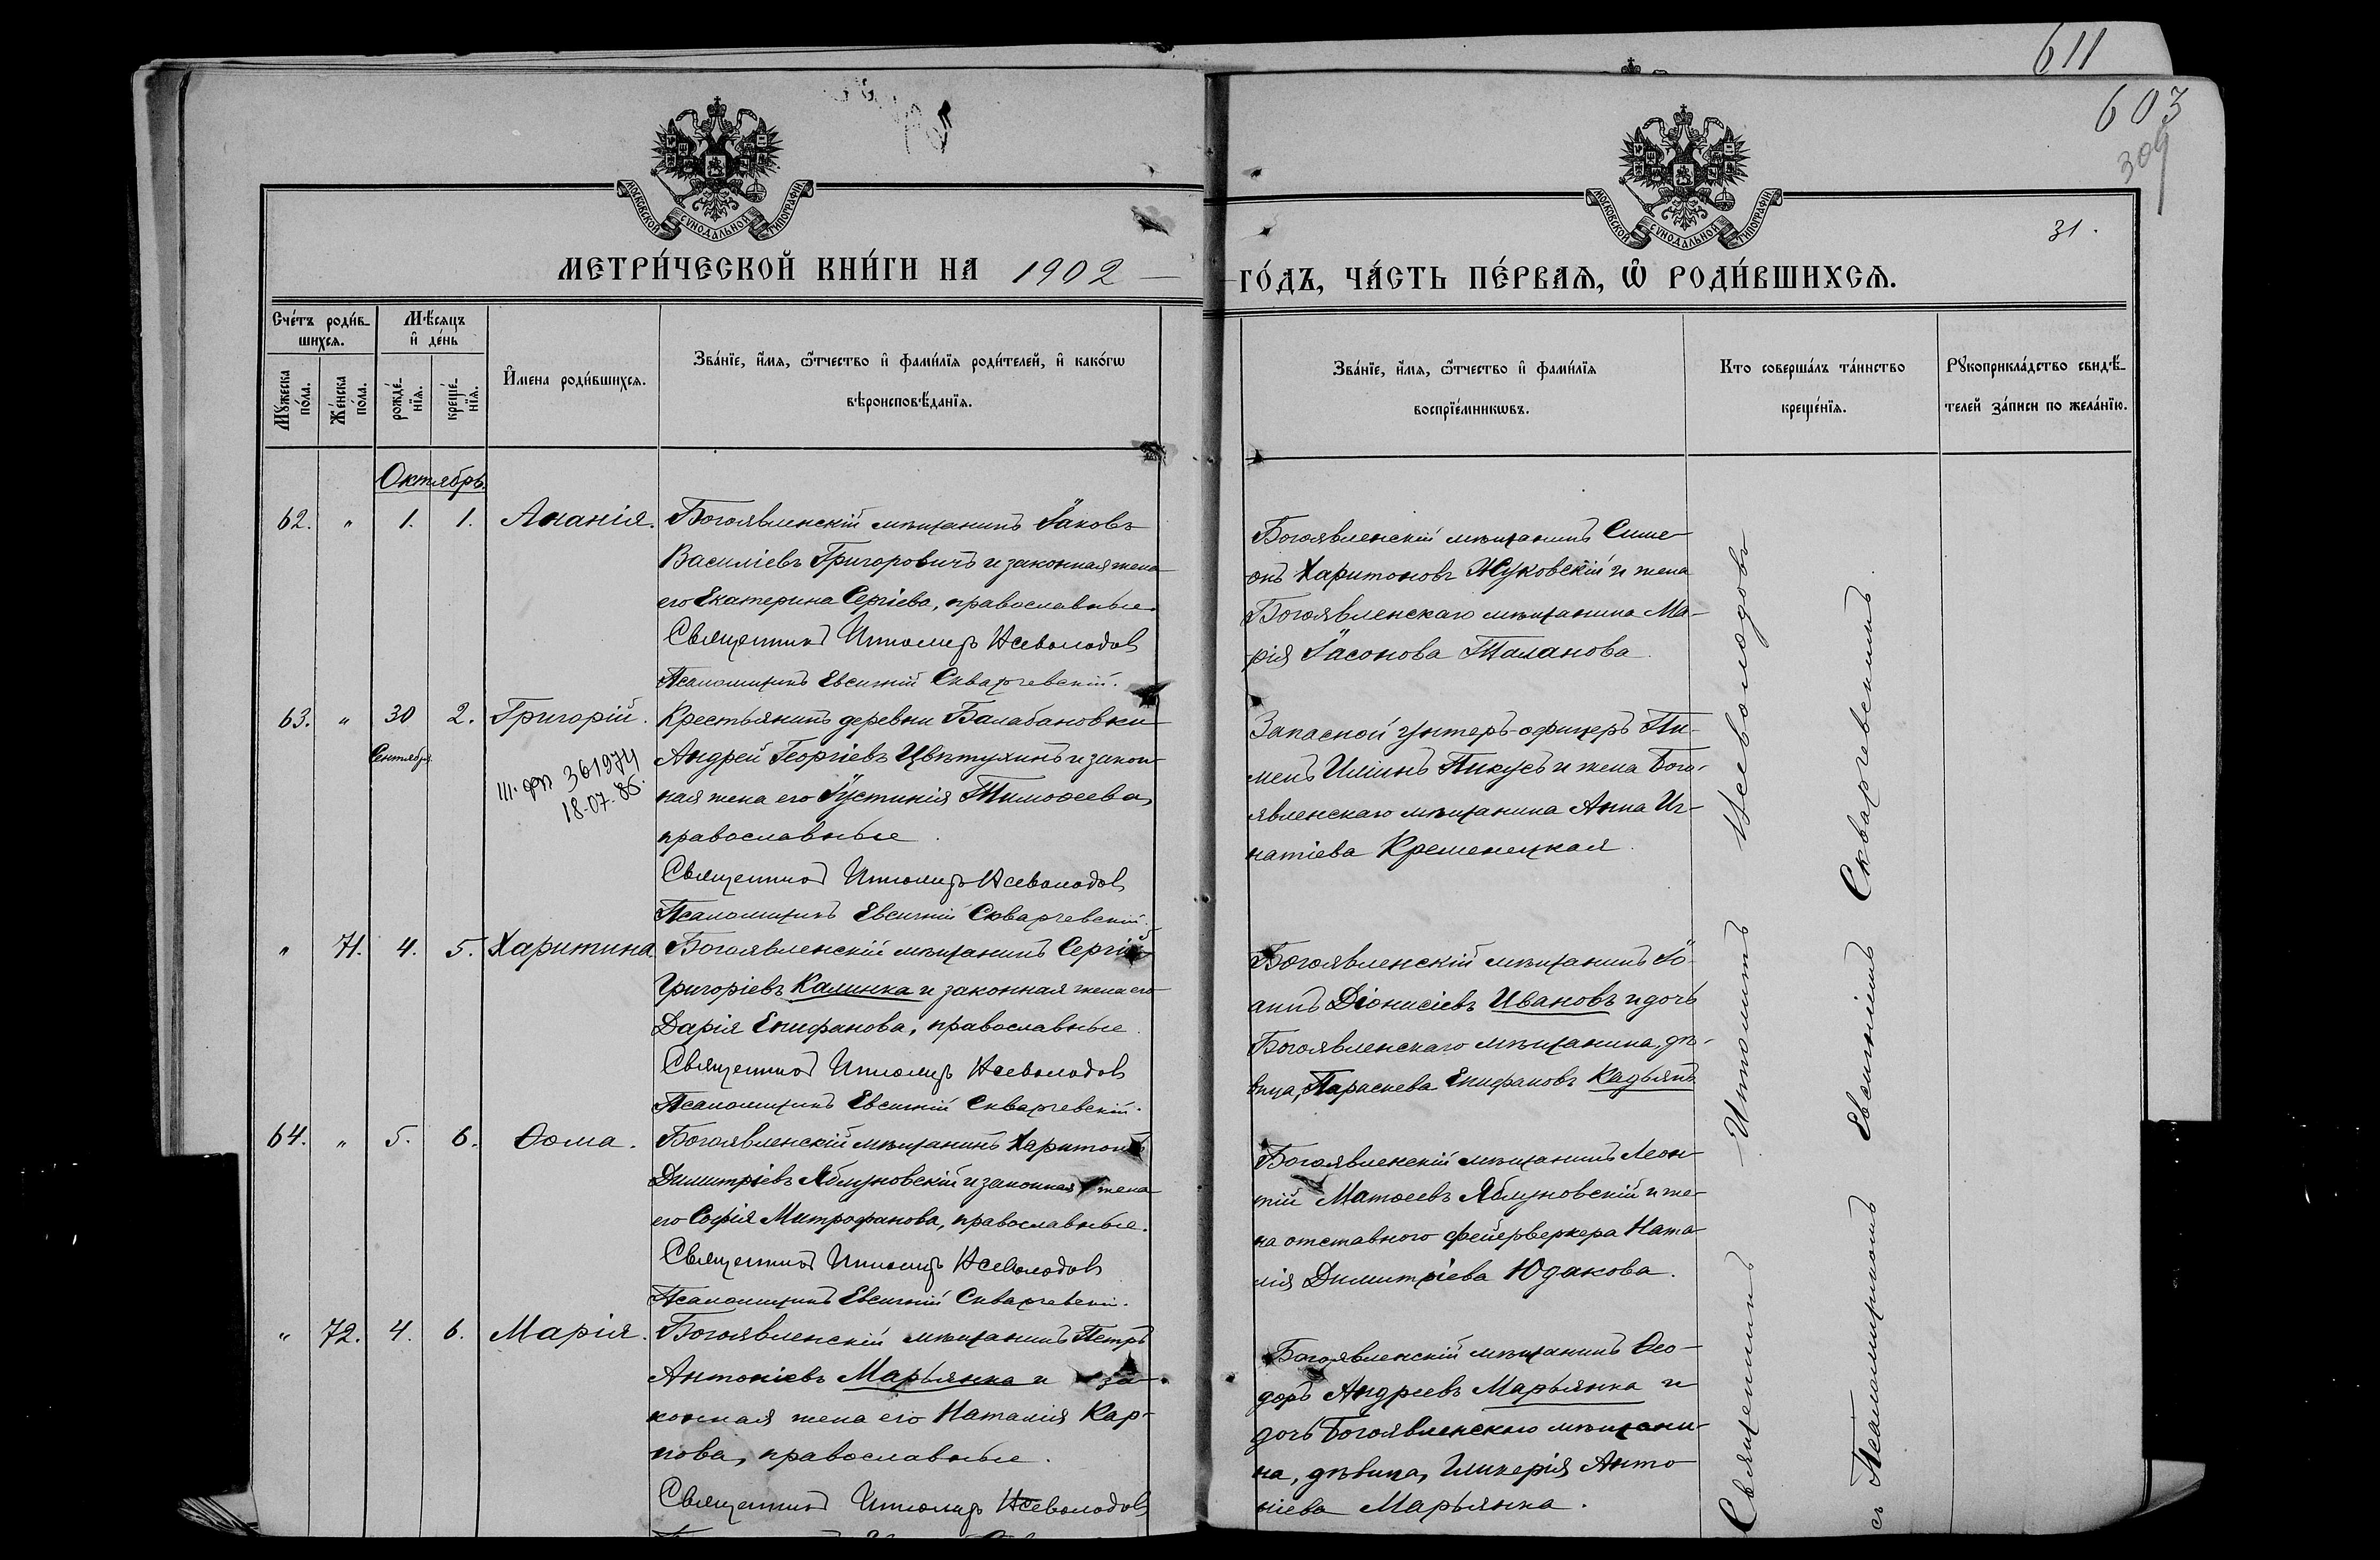 611
603
309
31.
МОСКОВСКОЙ СУНОДАЛЬНОЙ ТИПОГРАФІИ
МОСКОВСКОЙ СУНОДАЛЬНОЙ ТИПОГРАФІИ
МЕТРИ́ЧЕСКОЙ КНИ́ГИ НА 1902
ГО́ДЪ, ЧА́СТЬ ПЕ́РВАѦ, Ѡ҆ РОДИ́ВШИХСѦ.
Сче́тъ роди́в-
шихсѧ.
Му́жеска
по́ла.
Же́нска
по́ла.
Мѣ́сѧцъ
и҆ де́нь
рожде́-
нїѧ.
креще́-
нїѧ.
И҆мена роди́вшихсѧ.
Зва́нїе, и҆́мѧ, ѻ҆́тчество и҆ фами́лїѧ роди́телей, и҆ како́гѡ
вѣроисповѣ́данїѧ.
Зва́нїе, и҆́мѧ, ѻ҆́тчество и҆ фами́лїѧ
воспрїе́мникѡвъ.
Кто соверша́лъ та́инство
креще́нїѧ.
Рꙋкоприкла́дство свидѣ́-
телей за́писи по жела́нїю.
Октябрь.
62. " 1. 1. Ананія.
Богоявленскій мѣщанинъ Іаковъ
Василіевъ Григоровичъ и законная жена
его Екатерина Сергіева, православные.
Священникъ Ипполитъ Всеволодов
Псаломщикъ Евсигній Скваргевскій.
Богоявленскій мѣщанинъ Симе-
онъ Харитоновъ Жуковскій и жена
Богоявленскаго мѣщанина Ма-
рія Іасонова Таланова.
63. " 30 2. Григорій.
Сентября
III. фп 361974
18.07.85.
Крестьянинъ деревни Балабановки
Андрей Георгіевъ Цвѣтухинъ и закон-
ная жена его Іустинія Тимоѳеева,
православные.
Священникъ Ипполитъ Всеволодов
Псаломщикъ Евсигній Скваргевскій.
Запасной унтеръ-офицеръ Пи-
менъ Иліинъ Пикусъ и жена Бого-
явленскаго мѣщанина Анна Иг-
натіева Кременецкая.
" 71. 4. 5. Харитина
Богоявленскій мѣщанинъ Сергій
Григоріевъ Калинка и законная жена его
Дарія Епифанова, православные.
Священникъ Ипполитъ Всеволодов
Псаломщикъ Евсигній Скваргевскій.
Богоявленскій мѣщанинъ Іо-
аннъ Діонисіевъ Ивановъ и дочь
Богоявленскаго мѣщанина, дѣ-
вица, Параскева Епифановъ Кадьянъ
64. " 5. 6. Ѳома.
Богоявленскій мѣщанинъ Харитонъ
Димитріевъ Яблуновскій и законная жена
его Софія Митрофанова, православные.
Священникъ Ипполитъ Всеволодов
Псаломщикъ Евсигній Скваргевскій.
Богоявленскій мѣщанинъ Леон-
тій Матѳеевъ Яблуновскій и же-
на отставного фейерверкера Ната-
лія Димитріева Юдакова.
" 72. 4. 6. Марія.
Богоявленскій мѣщанинъ Петръ
Антоніевъ Марьянка и за-
конная жена его Наталія Кар-
пова, православные.
Священникъ Ипполитъ Всеволодов
Богоявленскій мѣщанинъ Ѳео-
доръ Андреевъ Марьянка и
дочь Богоявленскаго мѣщани-
на, дѣвица, Гликерія Анто-
ніева Марьянка.
Священникъ Ипполитъ Всеволодовъ
съ Псаломщикомъ Евсигніемъ Скваргевскимъ.